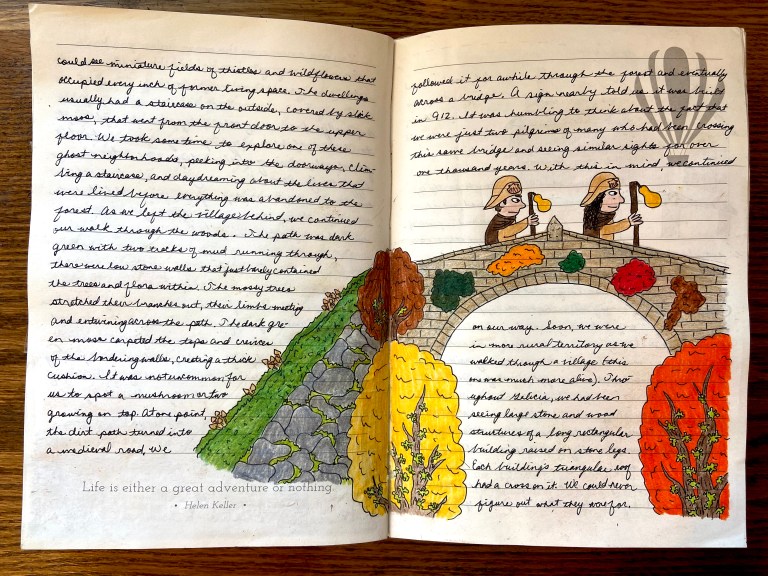 could see miniature fields of thistles and wildflowers that
occupied every inch of former living space. The dwellings
usually had a staircase on the outside, covered by slick
moss, that went from the front door to the upper
floor. We took some time to explore one of these
ghost neighborhoods, peeking into the doorways, clim-
bing a staircase, and daydreaming about the lives that
were lived before everything was abandoned to the
forest. As we left the village behind, we continued
our walk through the woods. The path was dark
green with two tracks of mud running through,
there were low stone walls that just barely contained
the trees and flora within. The mossy trees
stretched their branches out, their limbs meeting
and entwining across the path. The dark gre-
en moss carpeted the tops and crevices
of the bordering walls, creating a thick
cushion. It was not uncommon for
us to spot a mushroom or two
growing on top. At one point
the dirt path turned into
a medieval road, we
Life is either a great adventure or nothing.
• Helen Keller •
followed it for awhile through the forest and eventually
across a bridge. A sign nearby told us it was built
in 912. It was humbling to think about the fact that
we were just two pilgrims of many who had been crossing
this same bridge and seeing similar sights for over
one thousand years. With this in mind, we continued
on our way. Soon, we were
in more rural territory as we
walked through a village (this
one was much more alive). Thro-
ughout Galicia, we had been
seeing large stone and wood
structures of a long rectangular
building raised on stone legs.
Each building's triangular roof
had a cross on it. We could never
figure out what they was for.